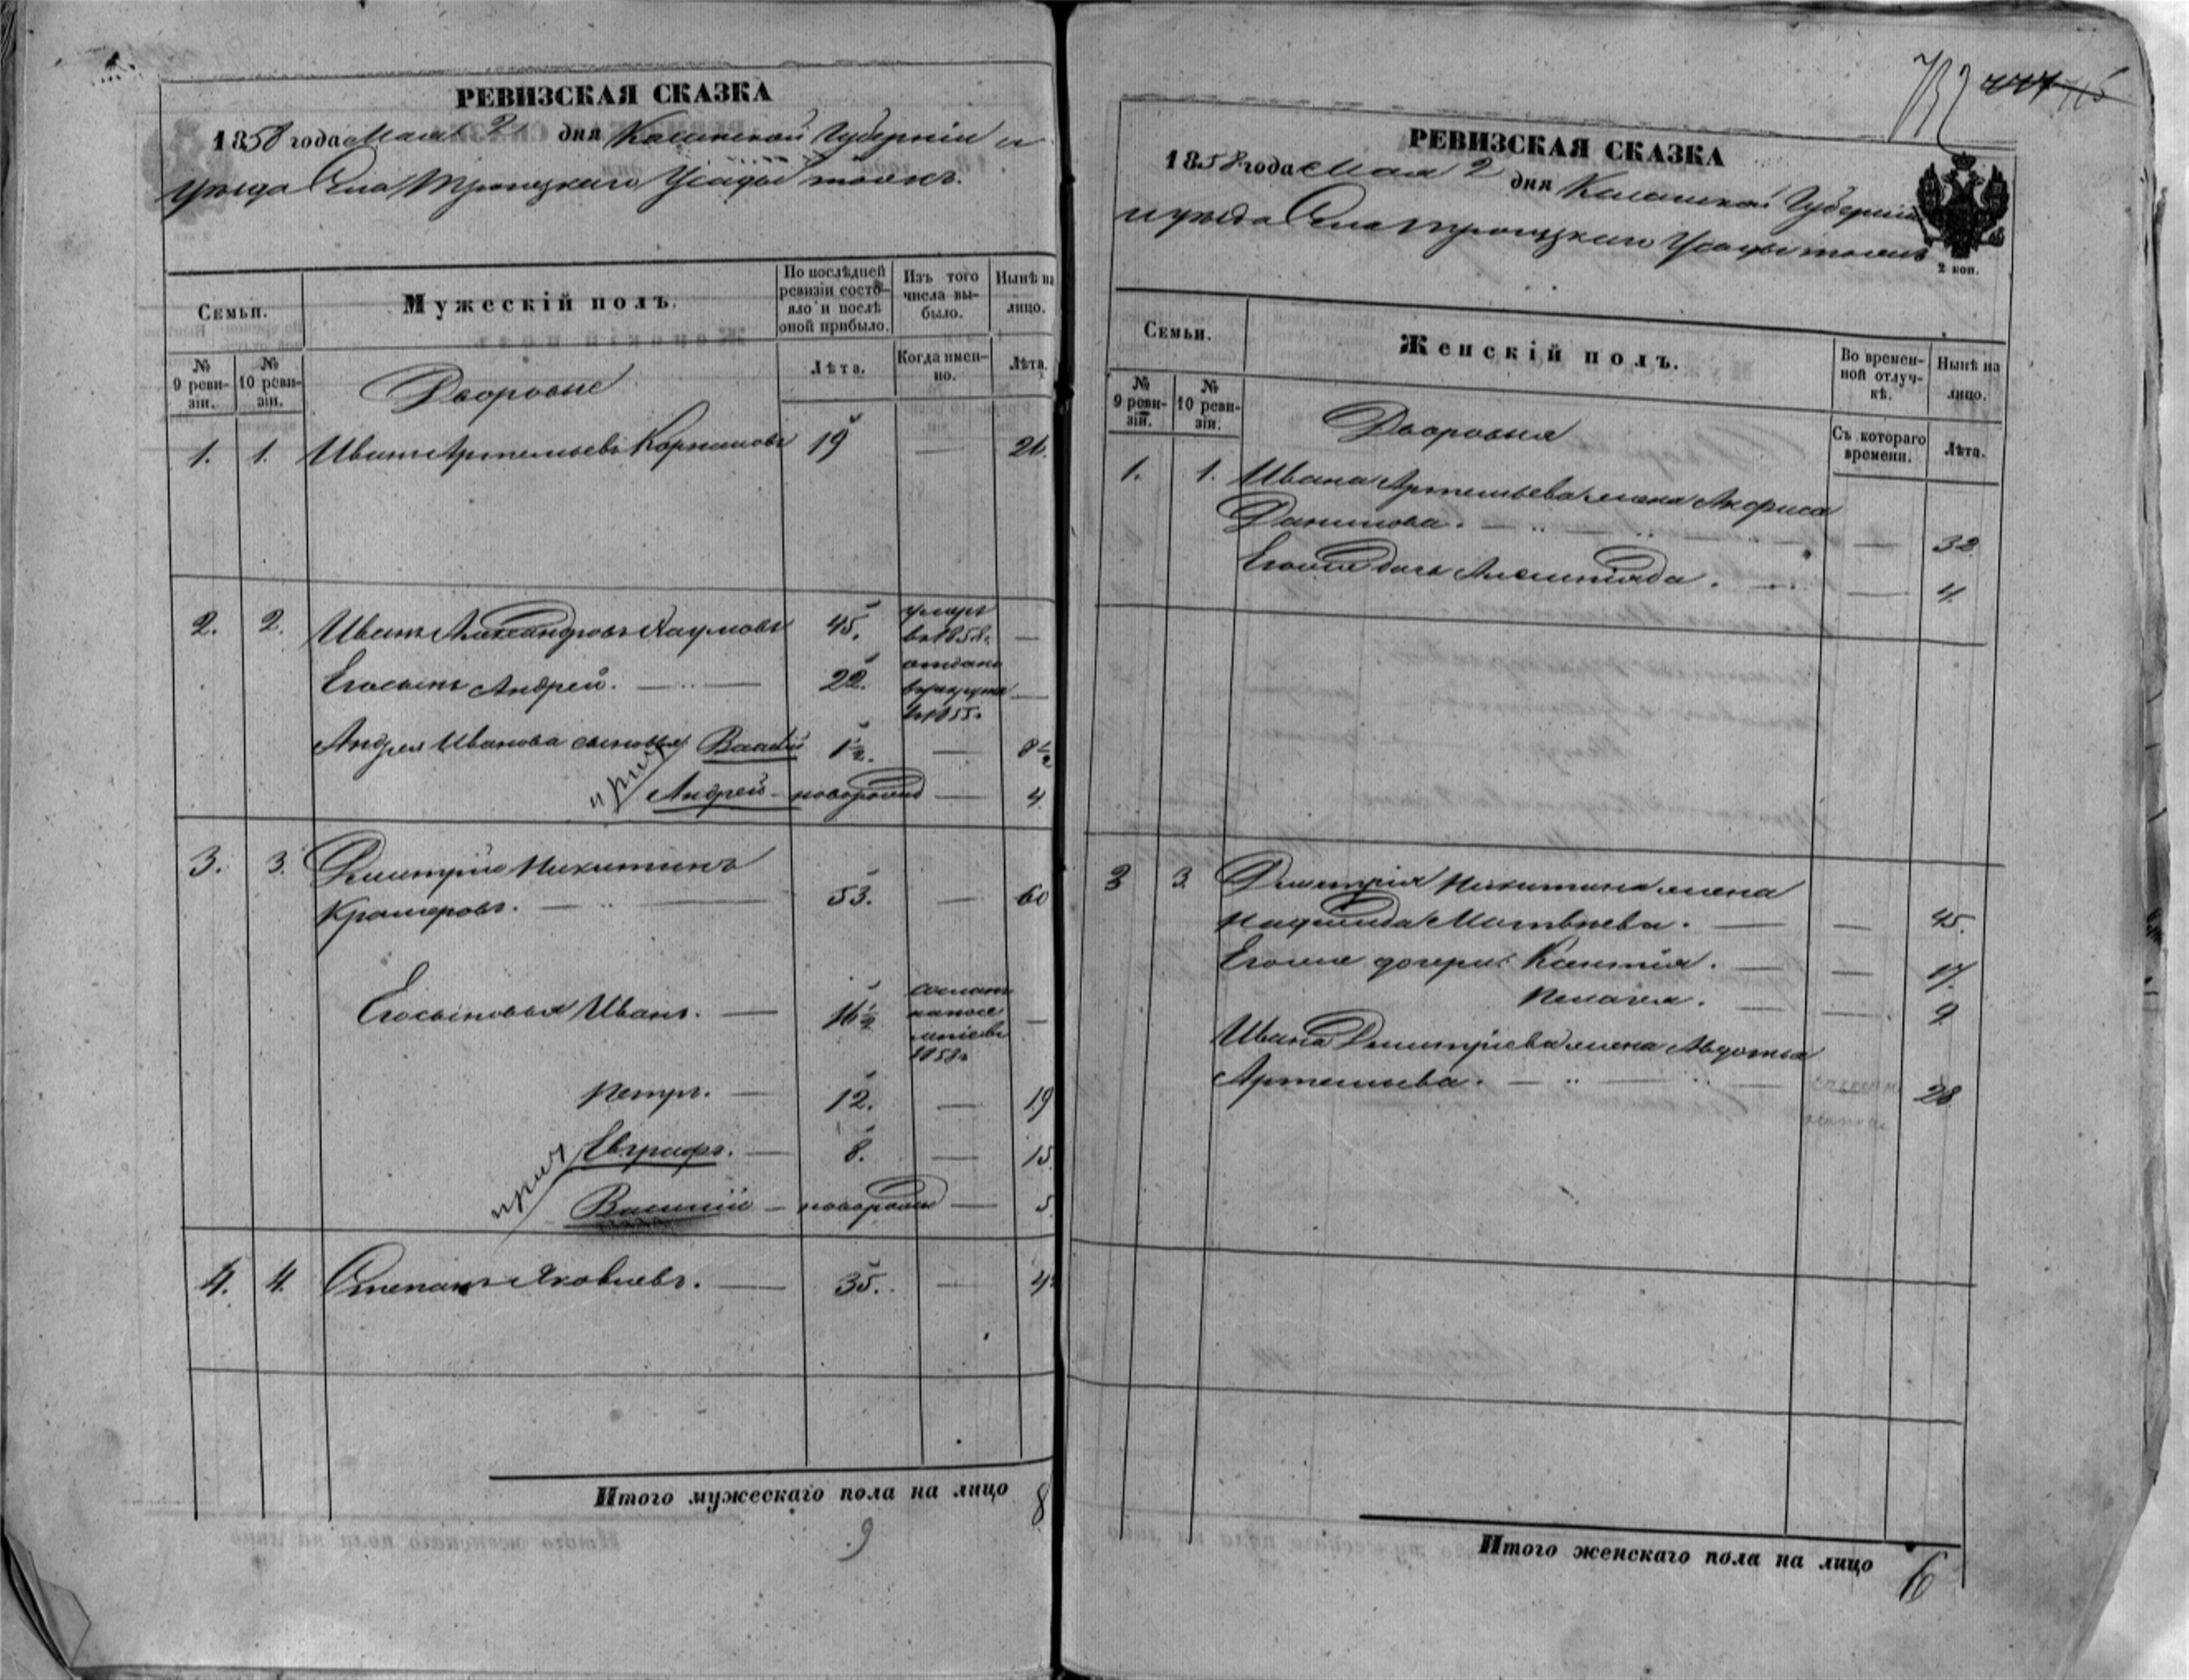 РЕВИЗСКАЯ СКАЗКА
1858 года Мая 2 дня Казанской Губерніи и
уѣзда Села Троицкаго Усады тожъ.
Семьи.
Мужескій полъ.
По послѣдней ревизіи состояло и послѣ оной прибыло.
Изъ того числа выбыло.
Нынѣ на лицо.
№ 9 ревизіи.
№ 10 ревизіи.
Лѣта.
Когда именно.
Лѣта.
Дворовые
1. 1. Иванъ Артемьевъ 19 — 26.
2. 2. Иванъ Александровъ Наумовъ 45. умеръ въ 1858. —
Его сынъ Андрей. — 22. отданъ в рекруты в 1855. —
Андрея Иванова сыновья Василій 1½. — 8½
Андрей — новорожд — 4
3. 3. Дмитрій Никитинъ
— 53. — 60
Его сыновья Иванъ. — 16½ сосланъ на поселеніе въ —
Петръ. — 12. — 19
Евграфъ. — 8. — 15.
Василій — новорожд — 5
4. 4. Степанъ Яковлевъ. — 35. —
Итого мужескаго пола на лицо 8
9
РЕВИЗСКАЯ СКАЗКА
1858 года Мая 2 дня Казанской Губерніи
и уѣзда Села Троицкаго Усады тожъ
2 коп.
Семьи.
Женскій полъ.
Во временной отлучкѣ.
Нынѣ на лицо.
№ 9 ревизіи.
№ 10 ревизіи.
Съ котораго времени.
Лѣта.
Дворовыя
1. 1. Ивана Артемьева жена
Данилова. — — 32
Егоже дочь — 4.
3 3. Дмитрія Никитина жена
Надежда Матвѣева. — — 45.
Егоже дочери: — — 17.
Пелагея. — — 9
Ивана Дмитріева жена Авдотья
Артемьева. — 28
Итого женскаго пола на лицо 6